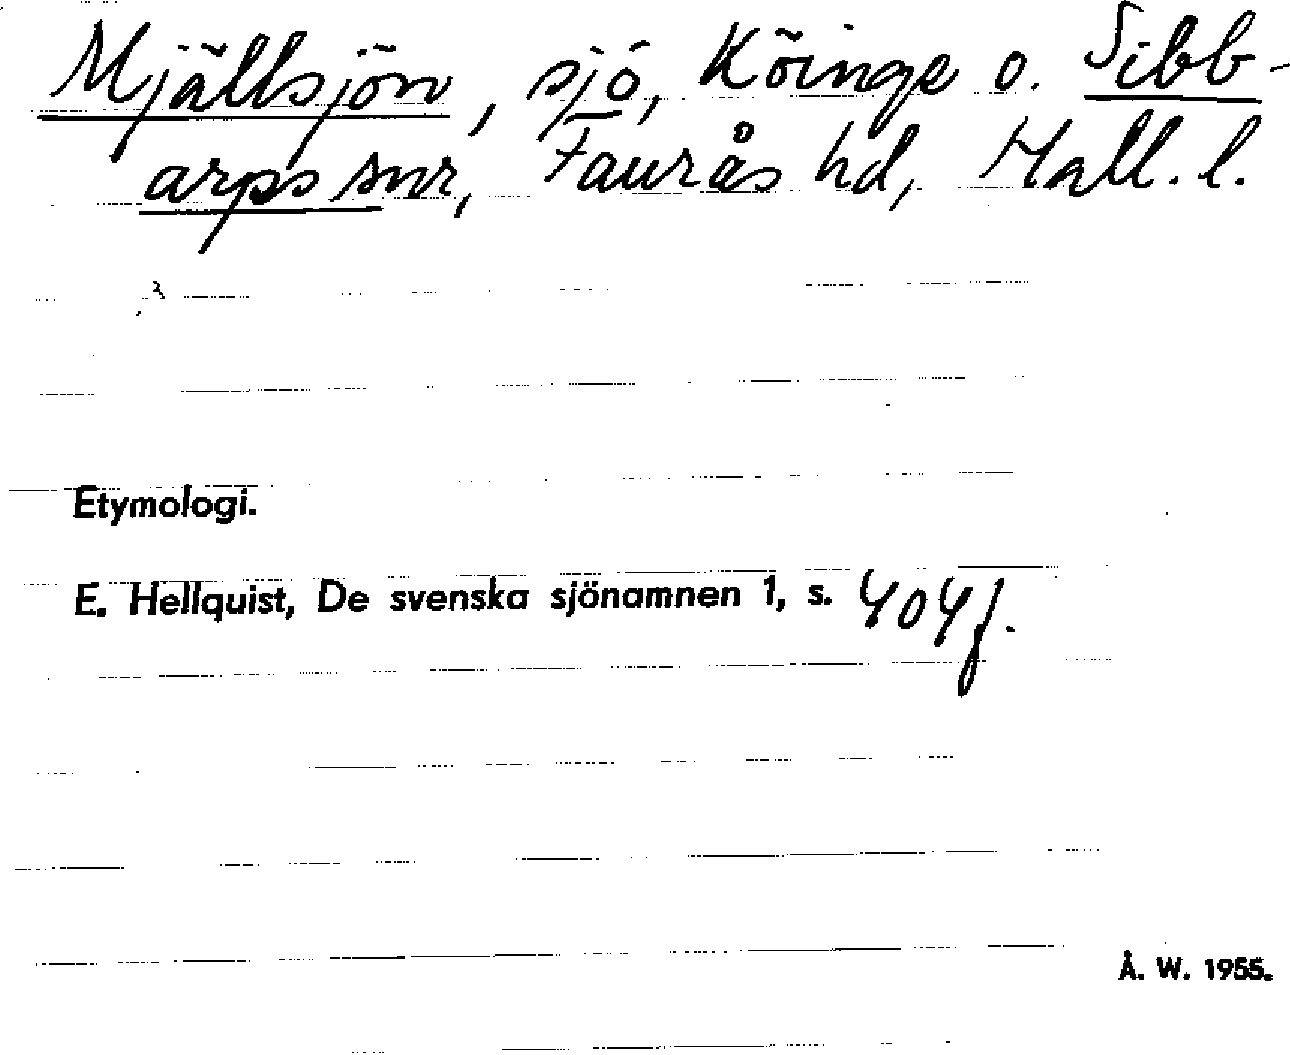 Mjällsjön, sjö, Köinge o. Sibb-
arps snr, Faurås hd, Hall. l.
Etymologi.
E. Hellquist, De svenska sjönamnen 1, s. 404 f.
Å. W. 1955.